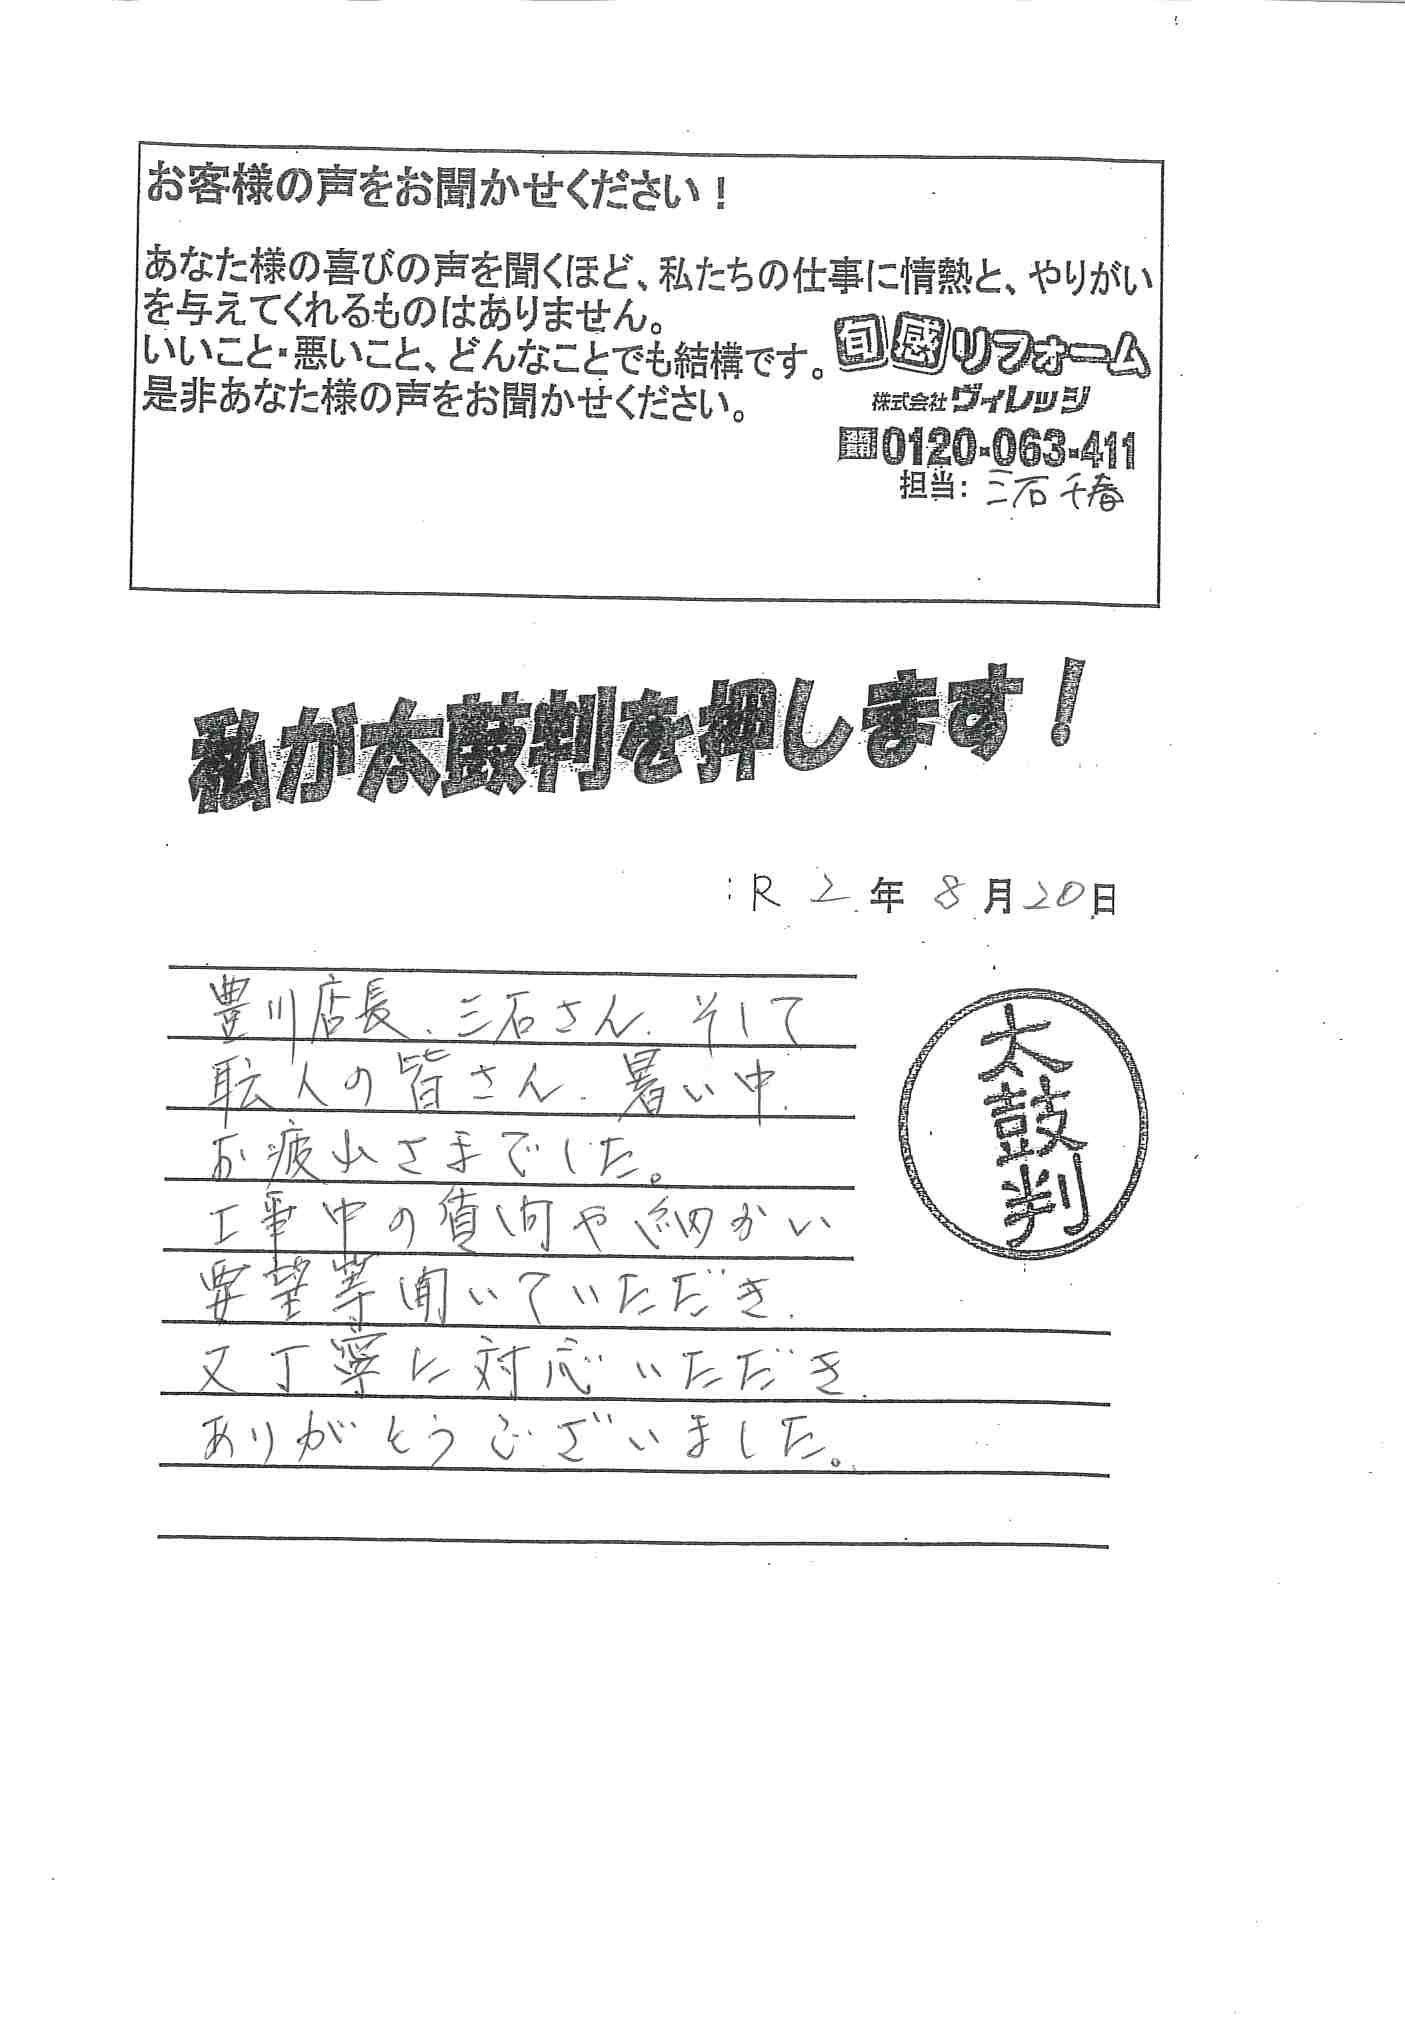 お客様の声をお聞かせください！
あなた様の喜びの声を聞くほど、私たちの仕事に情熱と、やりがい
を与えてくれるものはありません。
いいこと・悪いこと、どんなことでも結構です。
是非あなた様の声をお聞かせください。
旬感リフォーム
株式会社ヴィレッジ
0120-063-411
担当：三石千春
私が太鼓判を押します！
R2年8月20日
豊川店長、三石さん、そして
職人の皆さん、暑い中、
お疲れさまでした。
工事中の質問や細かい
要望等聞いていただき、
又丁寧に対応いただき、
ありがとうございました。
太鼓判